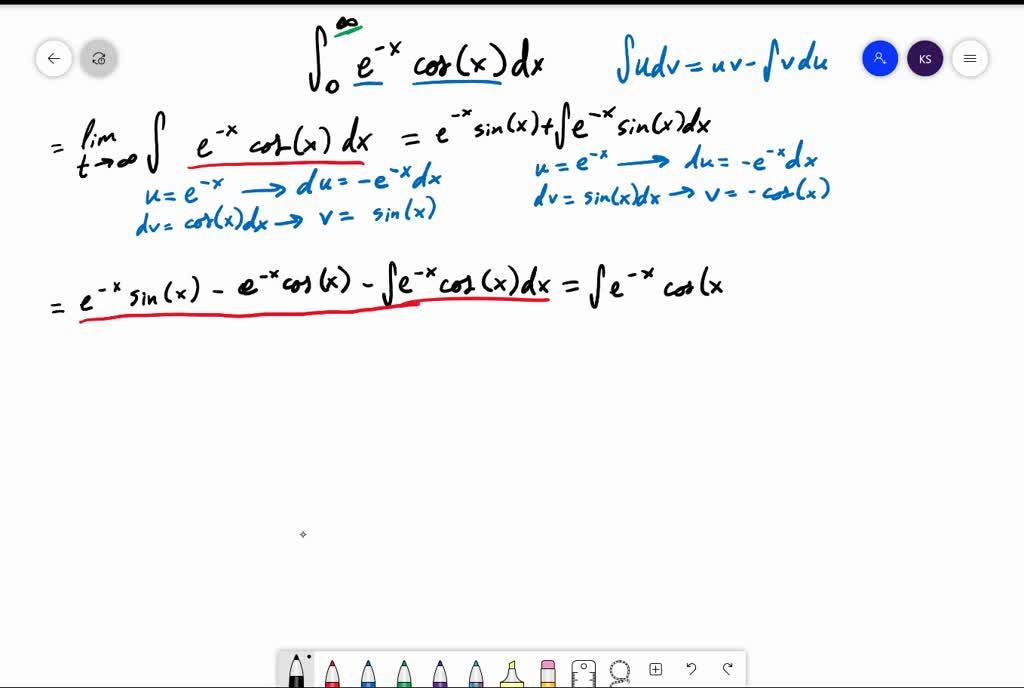 ∫₀^∞ e^{-x} cos(x) dx   ∫udv = uv - ∫vdu
KS
= lim_{t→∞} ∫ e^{-x} cos(x) dx = e^{-x} sin(x) + ∫e^{-x} sin(x)dx
u = e^{-x} → du = -e^{-x}dx   u = e^{-x} → du = -e^{-x}dx
dv = cos(x)dx → v = sin(x)   dv = sin(x)dx → v = -cos(x)
= e^{-x} sin(x) - e^{-x}cos(x) - ∫e^{-x}cos(x)dx = ∫e^{-x} cos(x